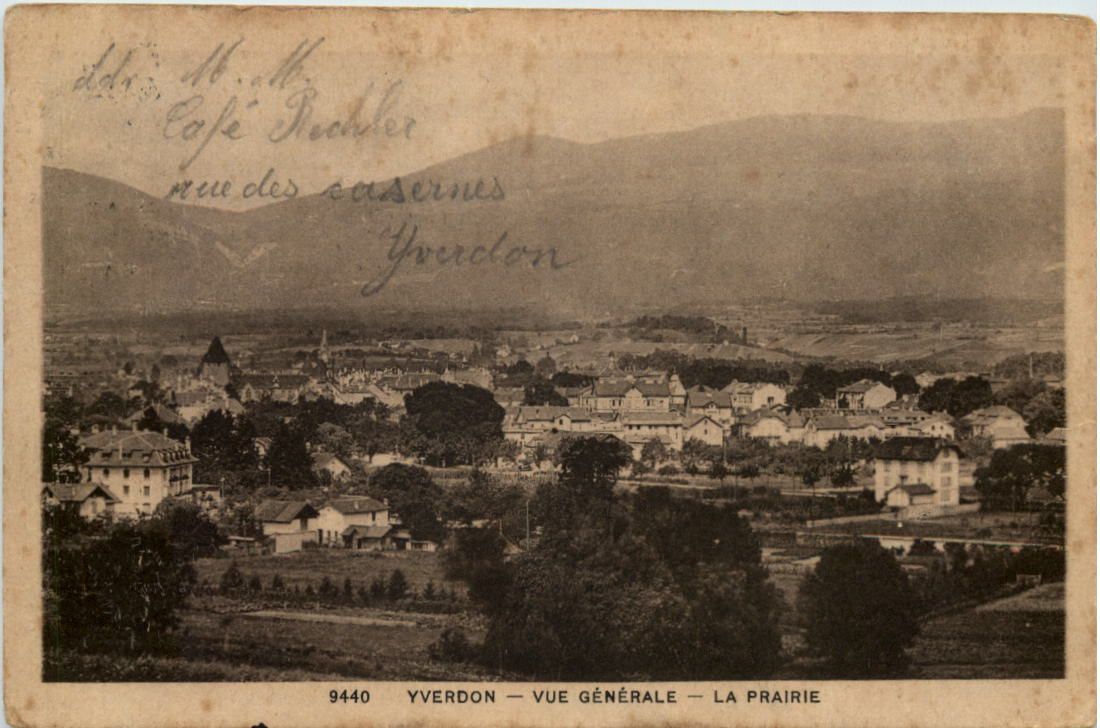 adr. M. M.
Café Bechler
rue des casernes
Yverdon
9440 YVERDON — VUE GÉNÉRALE — LA PRAIRIE